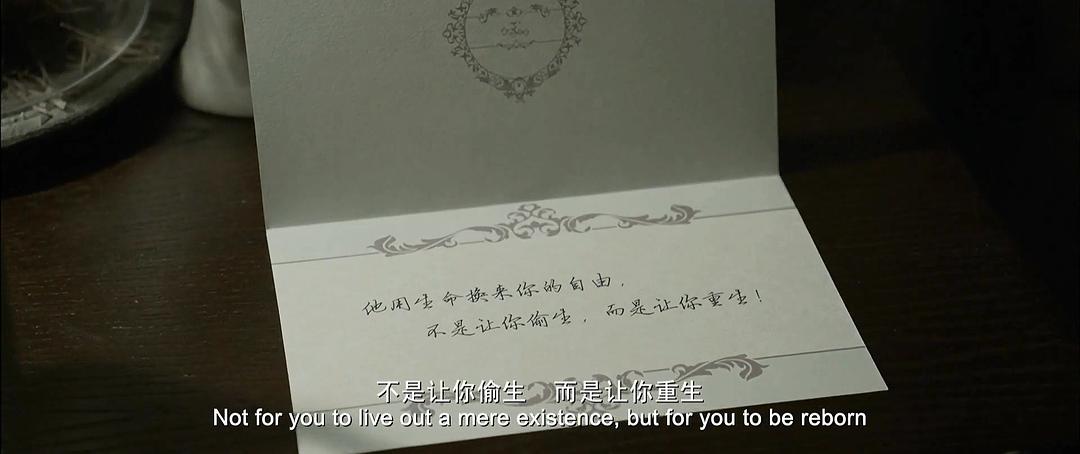 他用生命换来你的自由，
不是让你偷生，而是让你重生！
不是让你偷生 而是让你重生
Not for you to live out a mere existence, but for you to be reborn